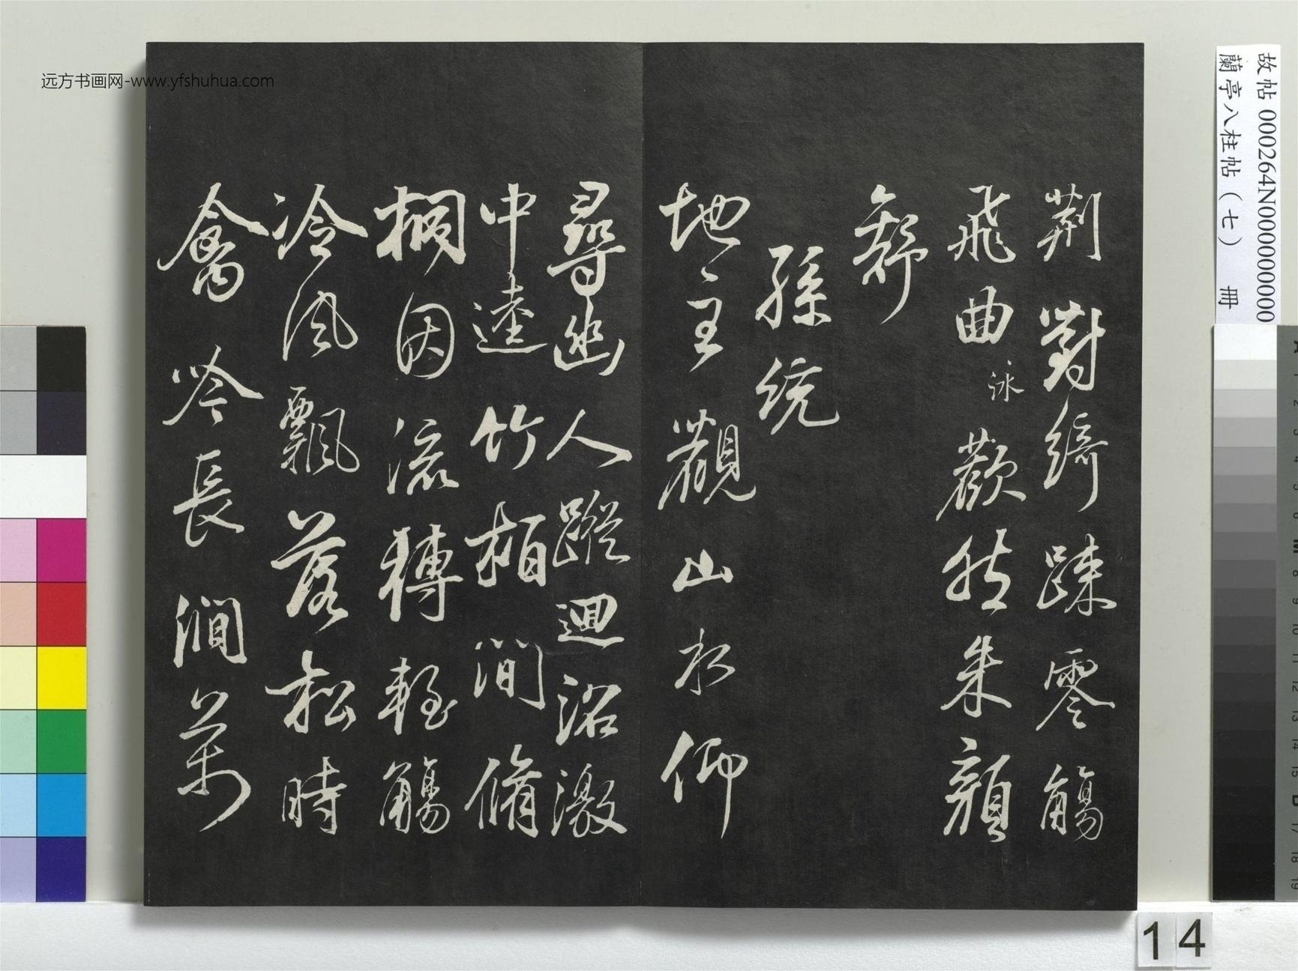 远方书画网-www.yfshuhua.com
故帖 000264N000000000
蘭亭八柱帖（七） 冊
荊對綺踈零觴
飛曲泳歡然朱顏
舒
孫統
地主觀山水仰
尋幽人蹤迴沼激
中逵竹栢間脩
桐因流轉輕觴
冷風飄落松時
禽吟長澗萬
14